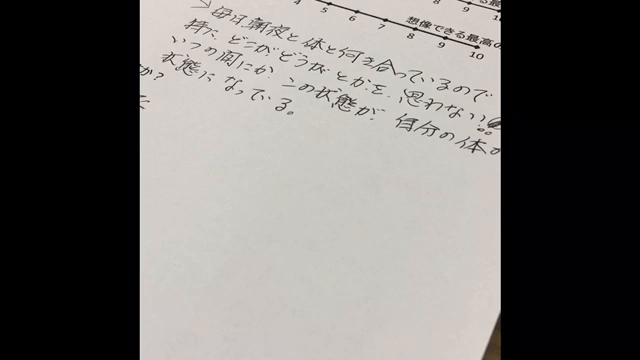 8 9 10
4 5 6 7 8 9 10
想像できる最高の
→毎日朝夜と体と向き合っているので
特に、どこがどうだとかを、思わない!!
いつの間にか この状態が、自分の体の
状態になっている。
か?